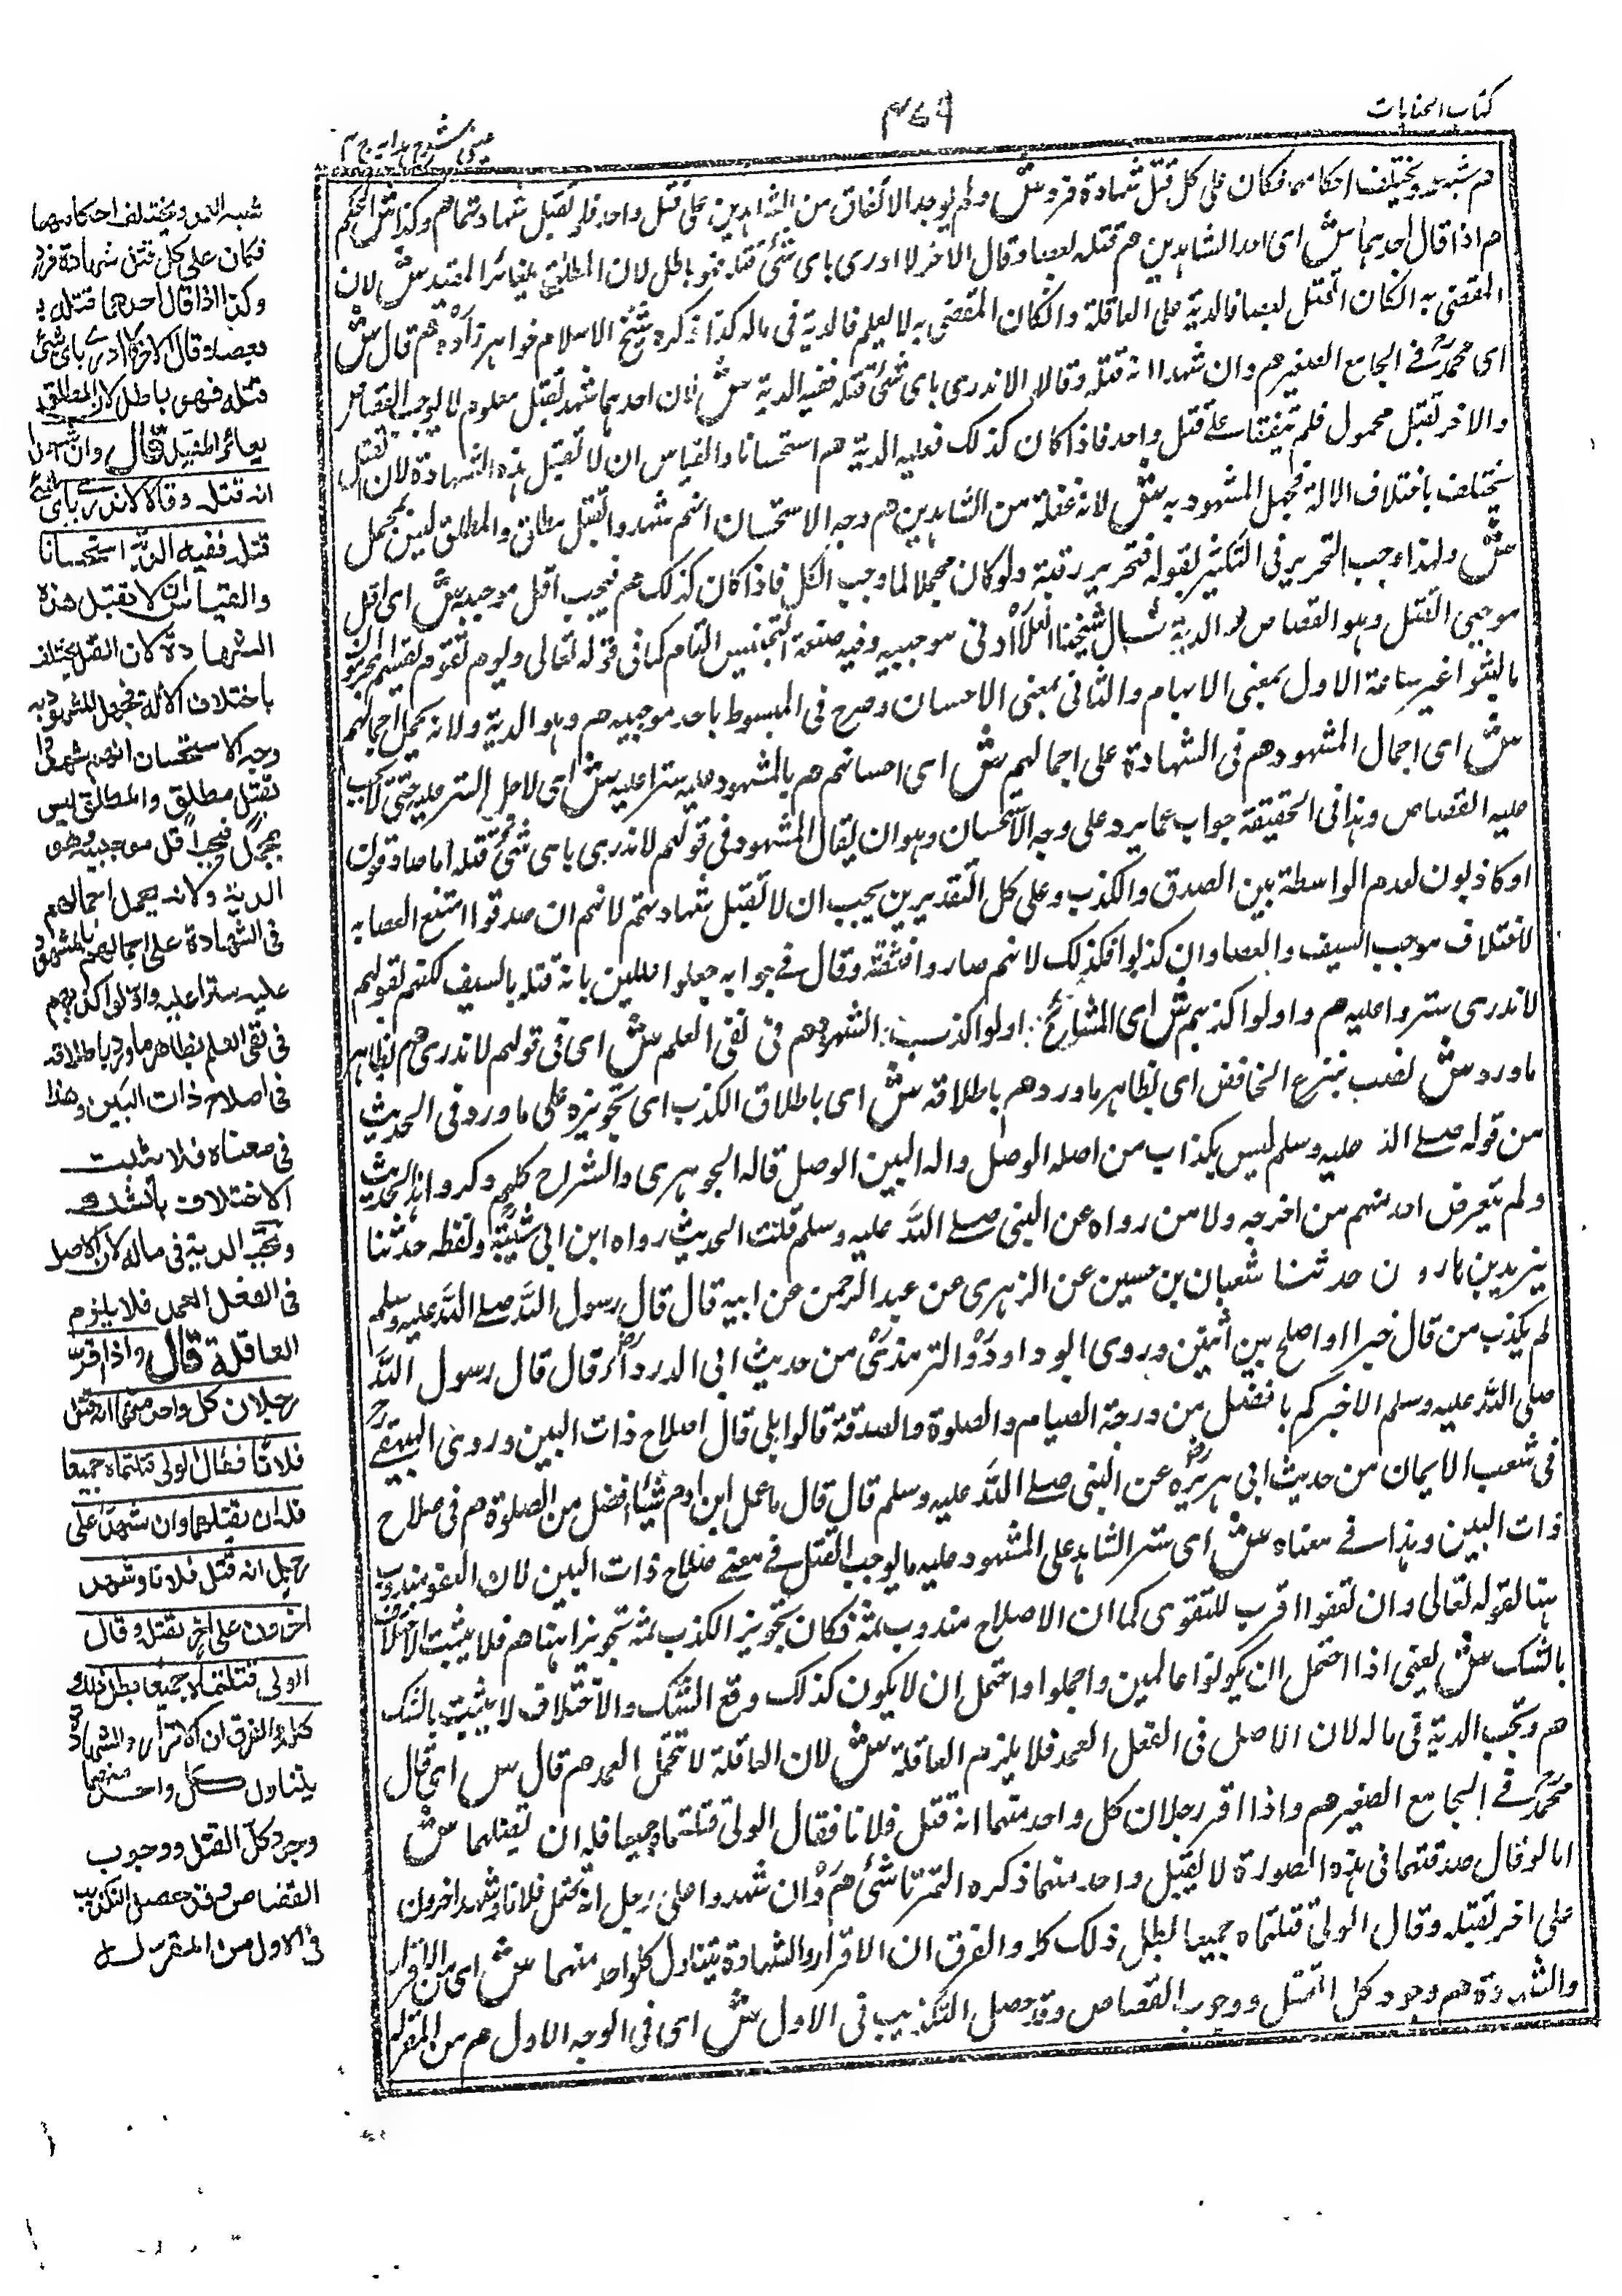 كتاب الجنايات
٤٦٩
عينى شرح هدايه ج ٤
هم شبه ويختلف احكامهما فكان على كل قتل شهادة فرد ش ولم يوجد الاتفاق من الشاهدين على قتل واحد فلم تقبل شهادتهما هم وكذا ش الحكم
هم اذا قال احدهما ش اى احد الشاهدين هم قتله بعصا وقال الاخر لا ادرى باى شئ قتله فهو باطل لان المطلق يغائر المقيد ش لان
المقضى به ان كان القتل بعصا فالدية على العاقلة وان كان المقضى به لا يعلم فالدية فى ماله كذا ذكره شيخ الاسلام خواهر زاده هم قال ش
اى محمد فى الجامع الصغير هم وان شهدا انه قتله وقالا لا ندرى باى شئ قتله ففيه الدية ش لان احدهما شهد بقتل معلوم لا يوجب القصاص
والاخر بقتل مجهول فلم يتفقا على قتل واحد فاذا كان كذلك فعليه الدية هم استحسانا والقياس ان لا تقبل هذه الشهادة لان القتل
يختلف باختلاف الالة فجهل المشهود به ش لانه غفلة من الشاهدين هم وجه الاستحسان انهم شهدوا بقتل مطلق والمطلق ليس بمجمل
ش ولهذا وجب التحرير فى التكفير بقوله فتحرير رقبة ولو كان مجملا لما وجب الكل فاذا كان كذلك هم فيجب اقل موجبيه ش اى اقل
موجبى القتل وهو القصاص والدية قال شيخنا العلاء ادنى موجبيه وفيه صنعة التجنيس التام كما فى قوله تعالى ويوم تقوم الساعة يقسم المجرمون
ما لبثوا غير ساعة الاول بمعنى الابهام والثانى بمعنى الاحسان وصرح فى المبسوط باحد موجبيه هم وهو الدية ولانه يحمل اجمالهم
ش اى اجمال الشهود هم فى الشهادة على اجمالهم ش اى احسانهم هم بالمشهود عليه سترا عليه ش اى لاجل الستر عليه حتى لا يجب
عليه القصاص وهذا فى الحقيقة جواب عما يرد على وجه الاستحسان وهو ان يقال الشهود فى قولهم لا ندرى باى شئ قتله اما صادقون
او كاذبون لعدم الواسطة بين الصدق والكذب وعلى كل التقديرين يجب ان لا تقبل شهادتهم لانهم ان صدقوا امتنع القصاص به
لاختلاف موجب السيف والعصا وان كذبوا فكذلك لانهم صاروا فسقة وقال فى جوابه جعلوا عالمين بانه قتله بالسيف لكنهم لقولهم
لا ندرى ستروا عليه هم واولوا كذبهم ش اى المشايخ اولوا كذب الشهود هم فى نفى العلم ش اى فى قولهم لا ندرى هم بظاهر
ما ورد ش نصب بنزع الخافض اى بظاهر ما ورد هم باطلاقه ش اى باطلاق الكذب اى تجويزه على ما ورد فى الحديث
من قوله صلى الله عليه وسلم ليس بكذاب من اصله الوصل واله البين الوصل قاله الجوهرى والشراح كلهم ذكروا هذا الحديث
ولم يتعرض احد منهم من اخرجه ولا من رواه عن النبى صلى الله عليه وسلم قلت الحديث رواه ابن ابى شيبة ولفظه حدثنا
يزيد بن هارون حدثنا شعبان بن حسين عن الزهرى عن عبد الرحمن عن ابيه قال قال رسول الله صلى الله عليه وسلم
لم يكذب من قال خيرا او اصلح بين اثنين وروى ابو داود والترمذى من حديث ابى الدرداء قال قال رسول الله
صلى الله عليه وسلم الا اخبركم بافضل من درجة الصيام والصلوة والصدقة قالوا بلى قال اصلاح ذات البين وروى البيهقى
فى شعب الايمان من حديث ابى هريرة عن النبى صلى الله عليه وسلم قال قال ما عمل ابن ادم شيئا افضل من الصلوة هم فى صلاح
ذات البين وهذا فى معناه ش اى ستر الشاهد على المشهود عليه ما يوجب القتل فى معنى صلاح ذات البين لان العفو مندوب
هنا لقوله تعالى وان تعفوا اقرب للتقوى كما ان الاصلاح مندوب ثمه فكان تجويز الكذب ثمه تجويزا هنا هم فلا يثبت الاختلاف
بالشك ش يعنى اذا احتمل ان يكونوا عالمين واجملوا واحتمل ان لا يكون كذلك وقع الشك والاختلاف لا يثبت بالشك
هم وتجب الدية فى ماله لان الاصل فى الفعل العمد فلا يلزم العاقلة ش لان العاقلة لا تتحمل العمد هم قال ش اى قال
محمد فى الجامع الصغير هم واذا اقر رجلان كل واحد منهما انه قتل فلانا فقال الولى قتلتماه جميعا فله ان يقتلهما ش
اما لو قال صدقتما فى هذه الصورة لا يقبل واحد منهما ذكره التمرتاشى هم وان شهدوا على رجل انه قتل فلانا وشهد اخرون
على اخر بقتله وقال الولى قتلتماه جميعا بطل ذلك كله والفرق ان الاقرار والشهادة يتناول كل واحد منهما ش اى من الاقرار
والشهادة هم وجود كل القتل ووجوب القصاص وقد حصل التكذيب فى الاول ش اى فى الوجه الاول هم من المقر له
شبه العمد ويختلف احكامهما
فكان على كل قتل شهادة فرد
وكذا اذا قال احدهما قتله
بعصا وقال الاخر لا ادرى باى شئ
قتله فهو باطل لان المطلق
يغائر المقيد قال وان شهدا
انه قتله وقالا لا ندرى باى شئ
قتله ففيه الدية استحسانا
والقياس ان لا تقبل هذه
الشهادة لان القتل يختلف
باختلاف الالة فجهل المشهود به
وجه الاستحسان انهم شهدوا
بقتل مطلق والمطلق ليس
بمجمل فيجب اقل موجبيه وهو
الدية ولانه يحمل اجمالهم
فى الشهادة على اجمالهم بالمشهود
عليه سترا عليه واولوا كذبهم
فى نفى العلم بظاهر ما ورد باطلاقه
فى اصلاح ذات البين وهذا
فى معناه فلا يثبت
الاختلاف بالشك
وتجب الدية فى ماله لان الاصل
فى الفعل العمد فلا يلزم
العاقلة قال واذا اقر
رجلان كل واحد منهما انه قتل
فلانا فقال الولى قتلتماه جميعا
فله ان يقتلهما وان شهدا على
رجل انه قتل فلانا وشهد
اخرون على اخر بقتله وقال
الولى قتلتماه جميعا بطل ذلك
كله والفرق ان الاقرار والشهادة
يتناول كل واحد منهما
وجود كل القتل ووجوب
القصاص وقد حصل التكذيب
فى الاول من المقر له